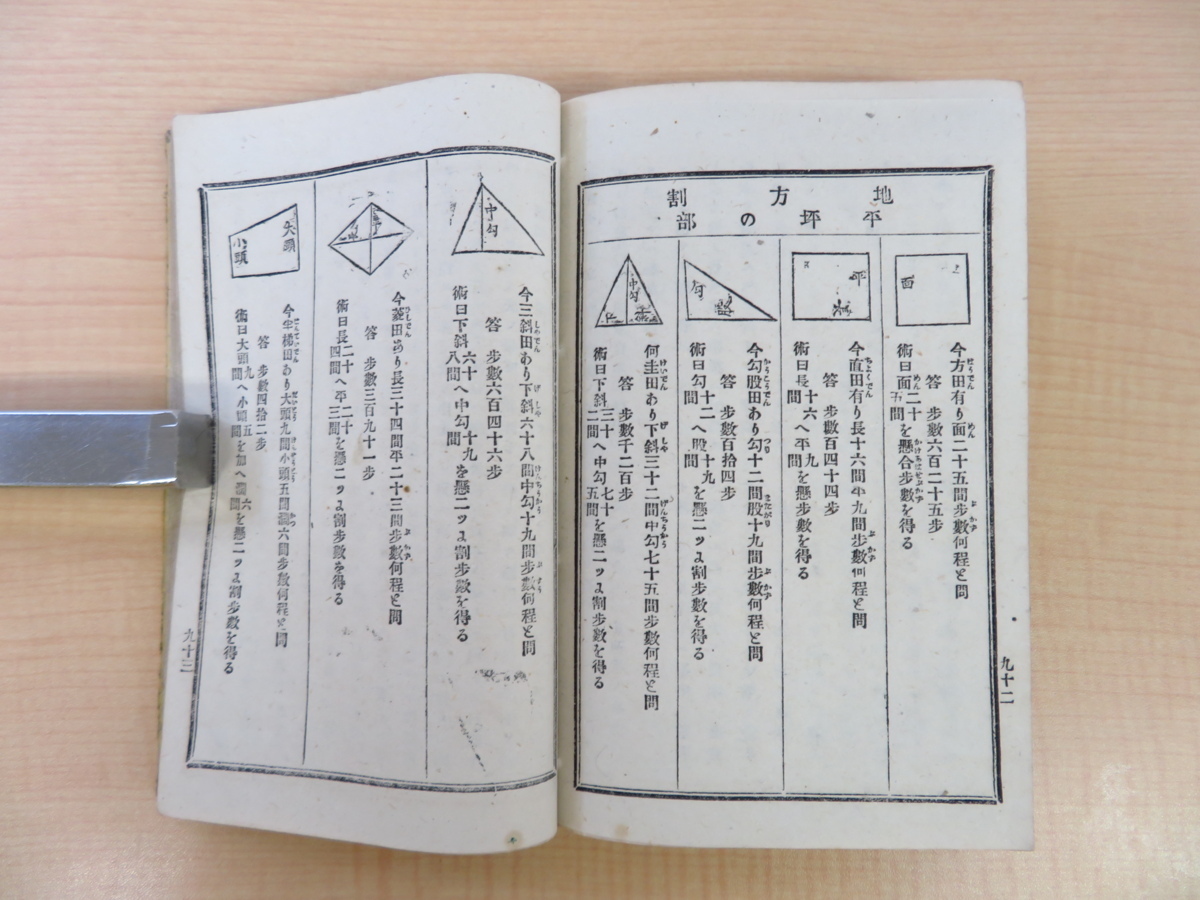 地方割
平坪の部
面
今方田有り面二十五間步數何程と問
答 步數六百二十五步
術曰面二十五間を懸合步數を得る
平
今直田有り長十六間平九間步數何程と問
答 步數百四十四步
術曰長十六間へ平九間を懸步數を得る
勾
今勾股田あり勾十二間股十九間步數何程と問
答 步數百拾四步
術曰勾十二間へ股十九間を懸二ツに割步數を得る
中勾
何圭田あり下斜三十二間中勾七十五間步數何程と問
答 步數千二百步
術曰下斜三十二間へ中勾七十五間を懸二ツに割步數を得る
九十二
中勾
今三斜田あり下斜六十八間中勾十九間步數何程と問
答 步數六百四十六步
術曰下斜六十八間へ中勾十九間を懸二ツに割步數を得る
今菱田あり長三十四間平二十三間步數何程と問
答 步數三百九十一步
術曰長二十四間へ平二十三間を懸二ツに割步數を得る
大頭
小頭
今半梯田あり大頭九間小頭五間濶六間步數何程と問
答 步數四拾二步
術曰大頭九間へ小頭五間を加へ濶六間を懸二ツに割步數を得る
九十三